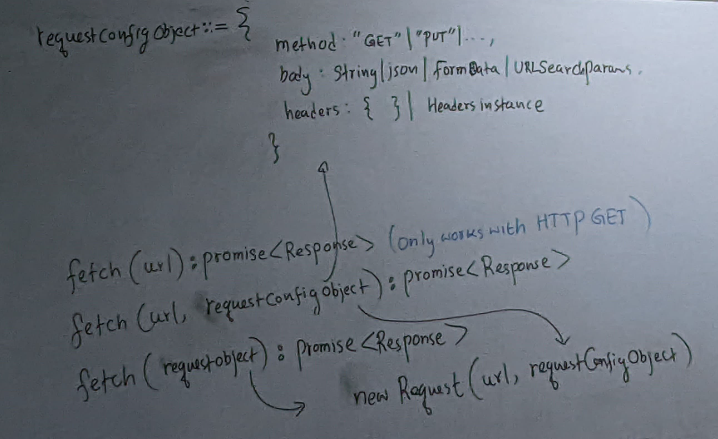 requestConfigObject::= {
method: "GET" | "PUT" | ...,
body: String | json | FormData | URLSearchParams,
headers: { } | Headers instance
}
fetch (url): promise<Response> (only works with HTTP GET)
fetch (url, requestConfigObject): promise<Response>
fetch (requestobject): promise<Response>
new Request (url, requestConfigObject)